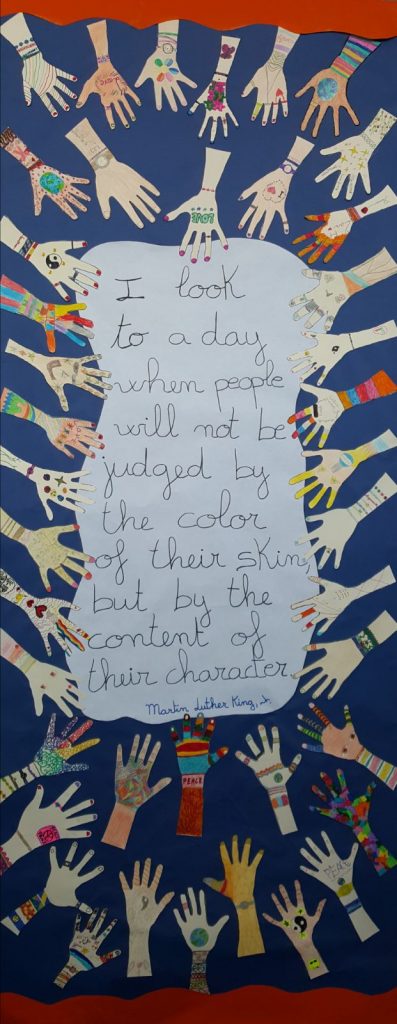 LOVE
I look
to a day
when people
will not be
judged by
the color
of their skin,
but by the
content of
their character.
Martin Luther King, Jr.
PEACE